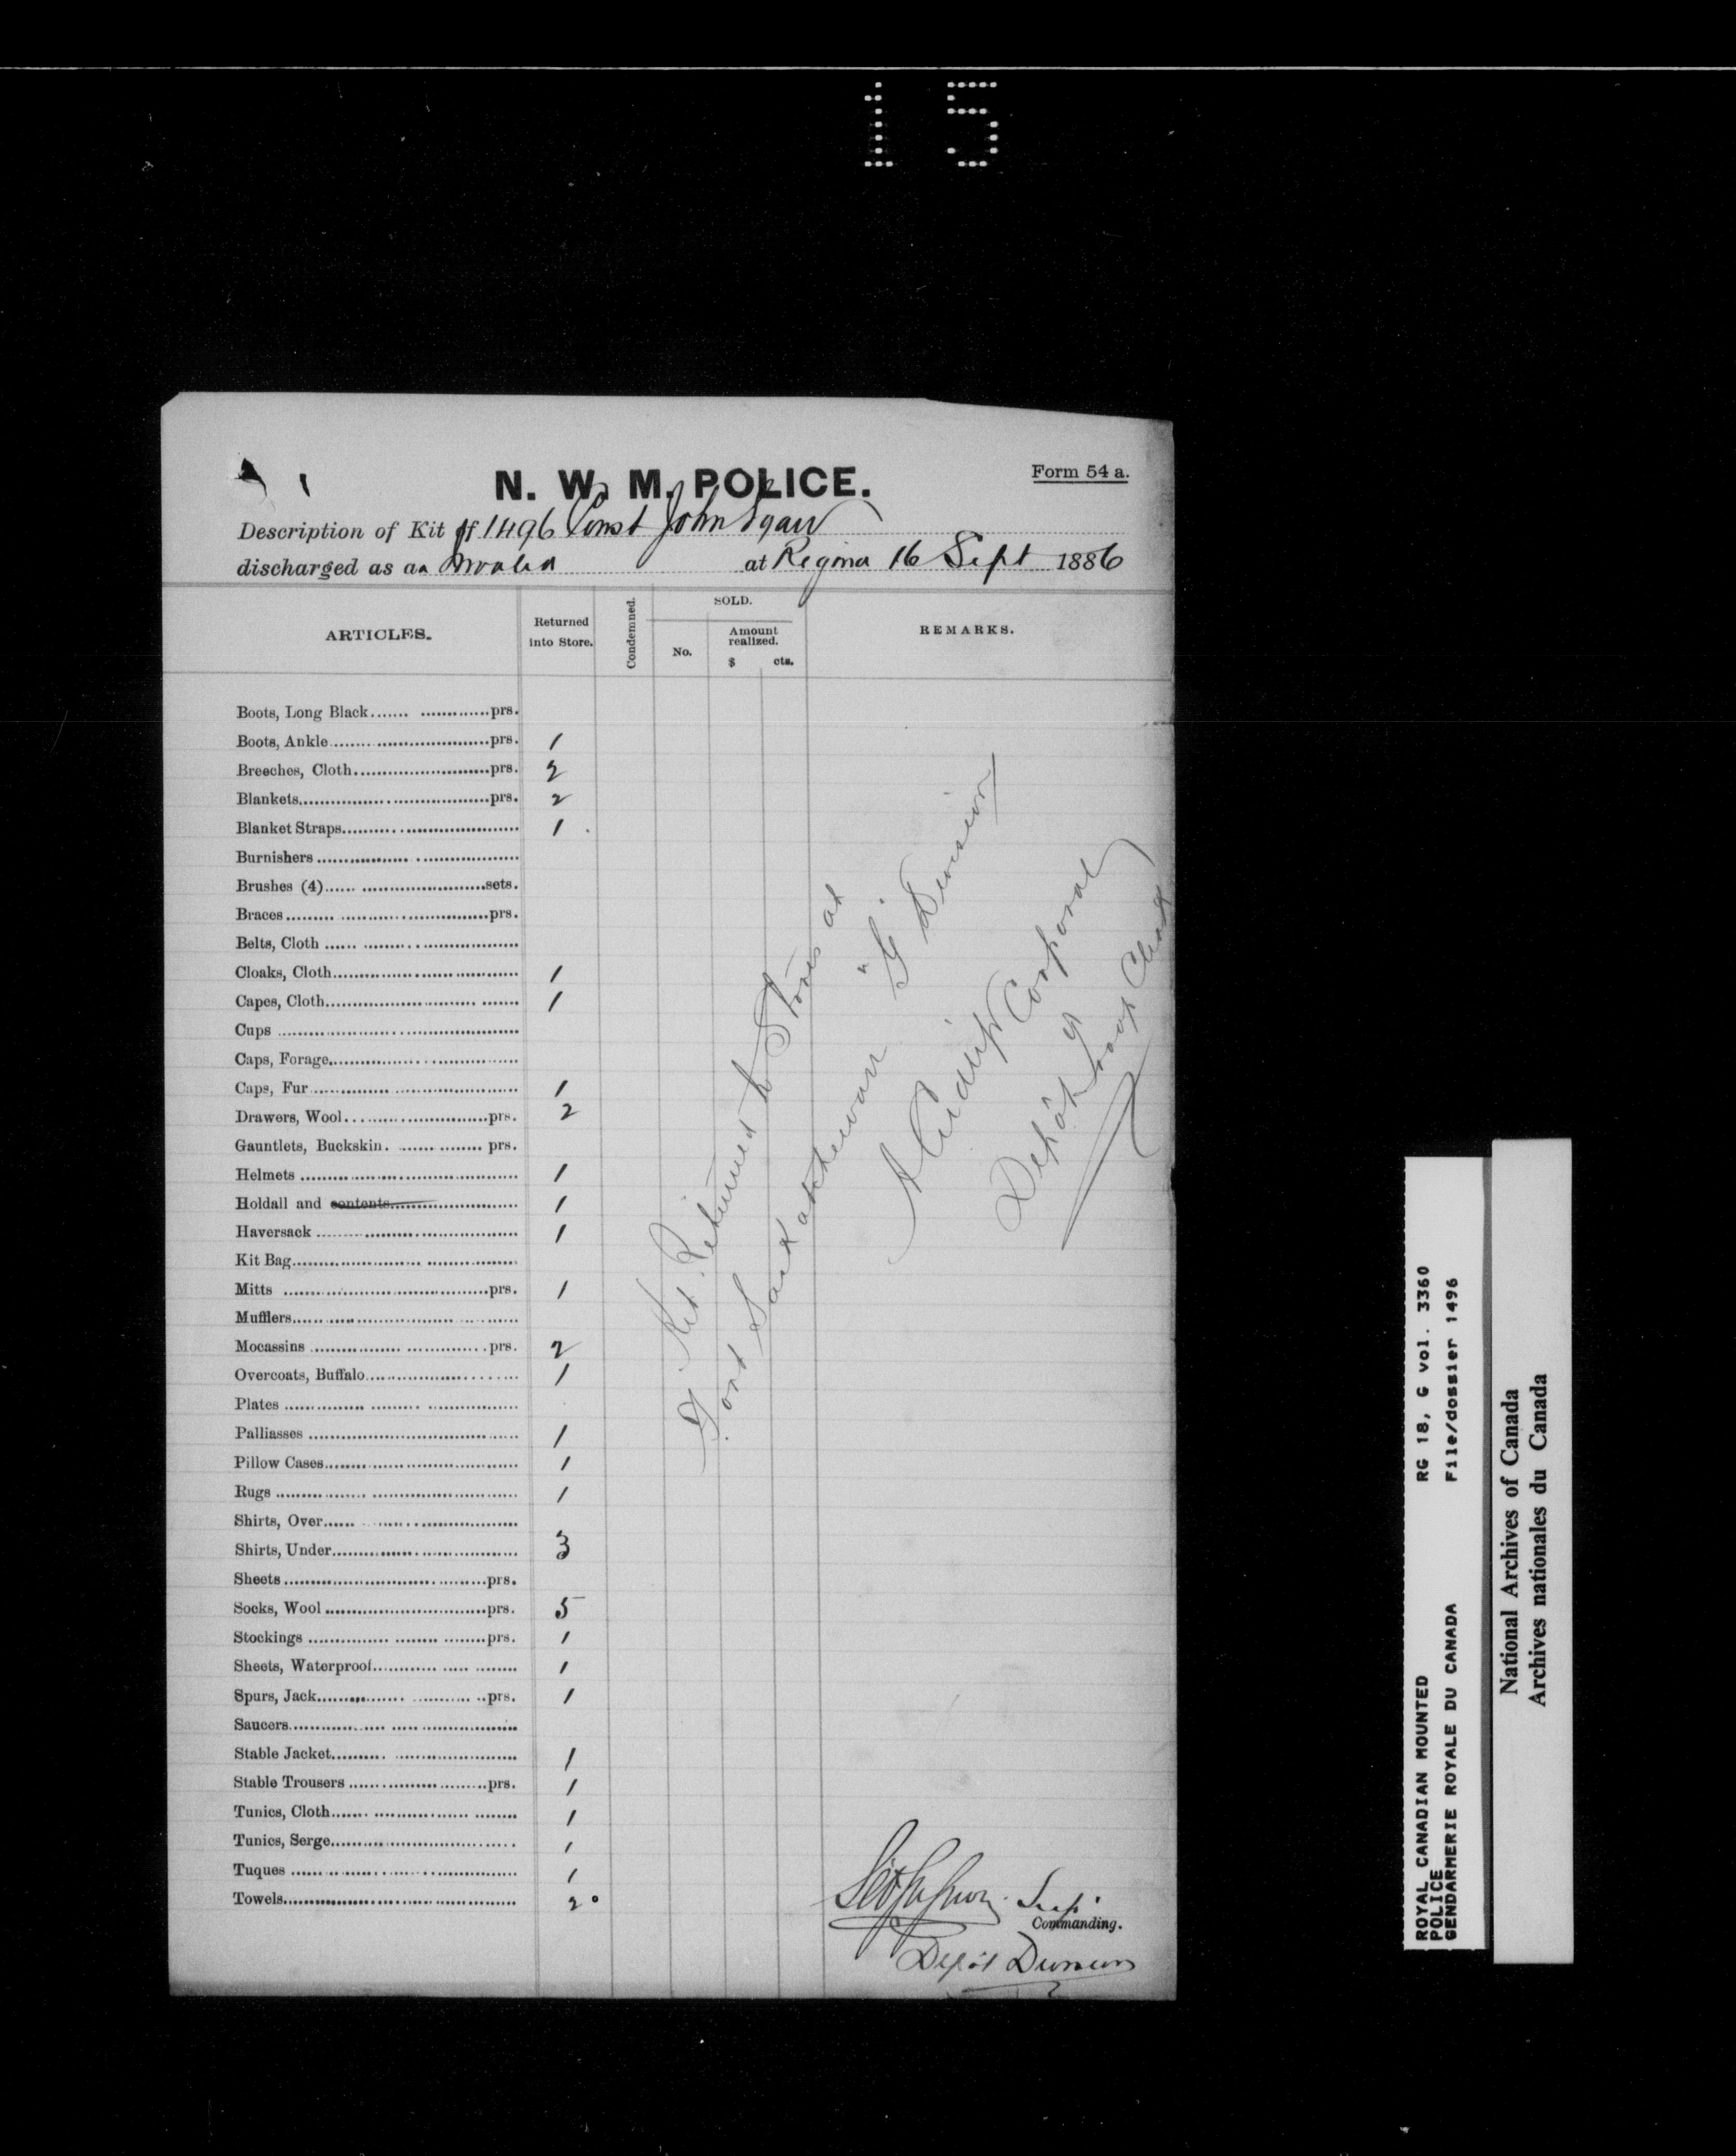 15
Form 54 a.
N. W. M. POLICE.
Description of Kit of 1496 Const John
discharged as an Invalid at Regina 16 Sept 1886
ARTICLES.
Returned into Store.
Condemned.
SOLD.
No.
Amount realized.
$ cts.
REMARKS.
Boots, Long Black prs.
Boots, Ankle prs. 1
Breeches, Cloth prs. 2
Blankets prs. 2
Blanket Straps 1
Burnishers
Brushes (4) sets.
Braces prs.
Belts, Cloth
Cloaks, Cloth 1
Capes, Cloth 1
Cups
Caps, Forage
Caps, Fur 1
Drawers, Wool prs. 2
Gauntlets, Buckskin prs.
Helmets 1
Holdall and contents 1
Haversack 1
Kit Bag
Mitts prs. 1
Mufflers
Mocassins prs. 2
Overcoats, Buffalo 1
Plates
Palliasses 1
Pillow Cases 1
Rugs 1
Shirts, Over
Shirts, Under 3
Sheets prs.
Socks, Wool prs. 5
Stockings prs. 1
Sheets, Waterproof 1
Spurs, Jack prs. 1
Saucers
Stable Jacket 1
Stable Trousers prs. 1
Tunics, Cloth 1
Tunics, Serge 1
Tuques 1
Towels 2
Kit Returned to Stores at
Fort Saskatchewan "G" Division
Corporal
Depôt Troop Clerk
Supt
Commanding.
Depôt Division
ROYAL CANADIAN MOUNTED POLICE RG 18, G vol. 3360
GENDARMERIE ROYALE DU CANADA File/dossier 1496
National Archives of Canada
Archives nationales du Canada